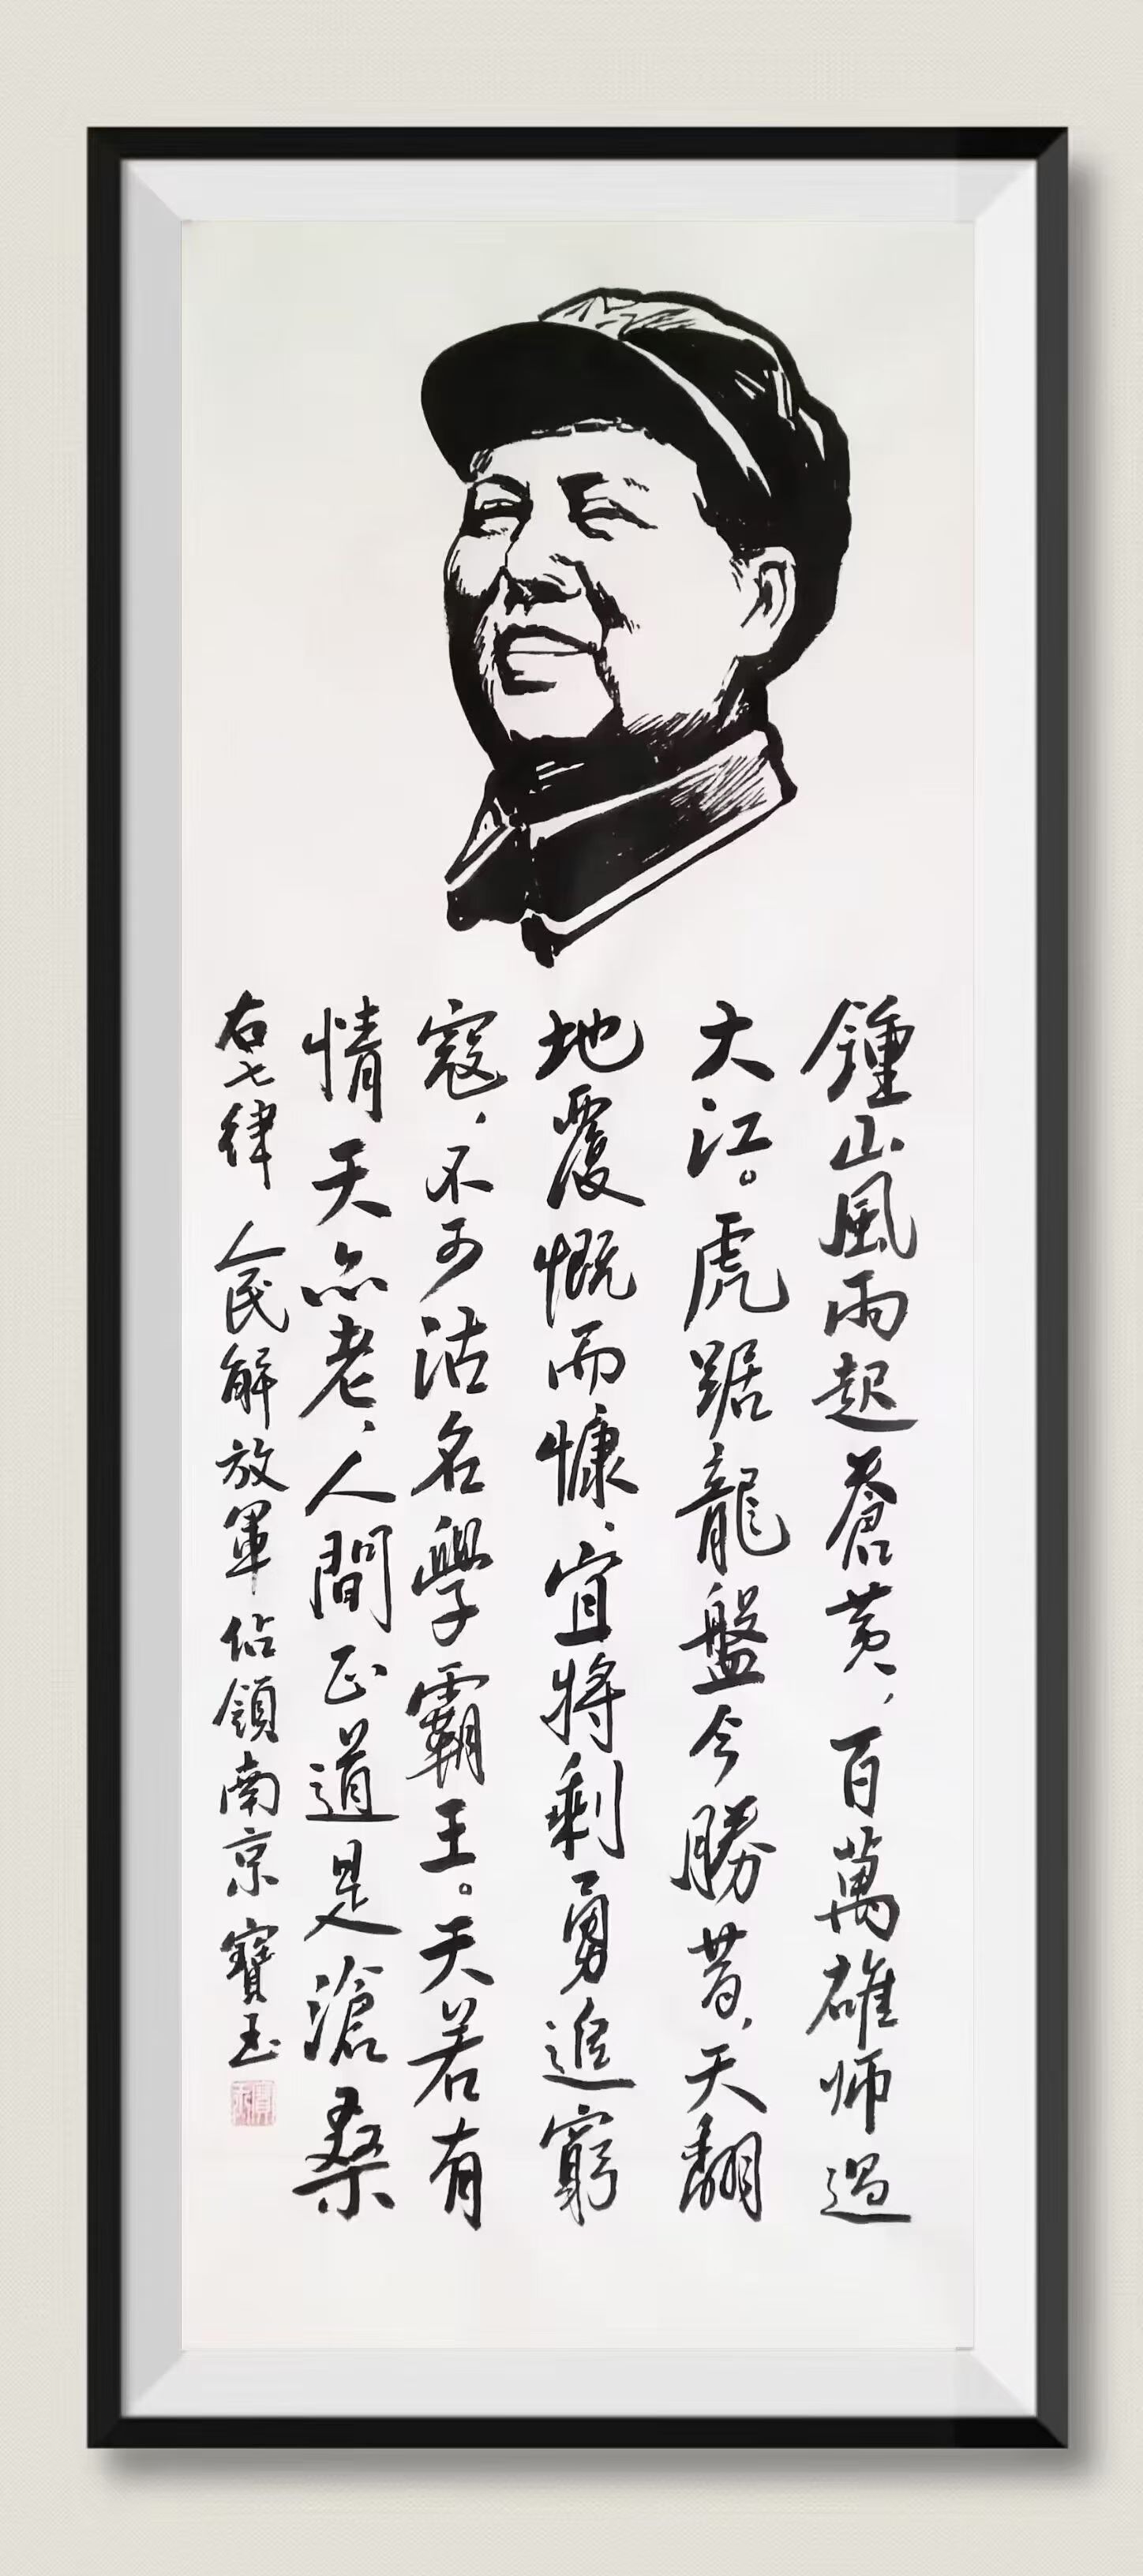 鍾山風雨起蒼黄，百萬雄师過
大江。虎踞龍盤今勝昔，天翻
地覆慨而慷、宜將剩勇追窮
寇，不可沽名學霸王。天若有
情天亦老，人間正道是滄桑
右七律 人民解放軍佔領南京 寶玉